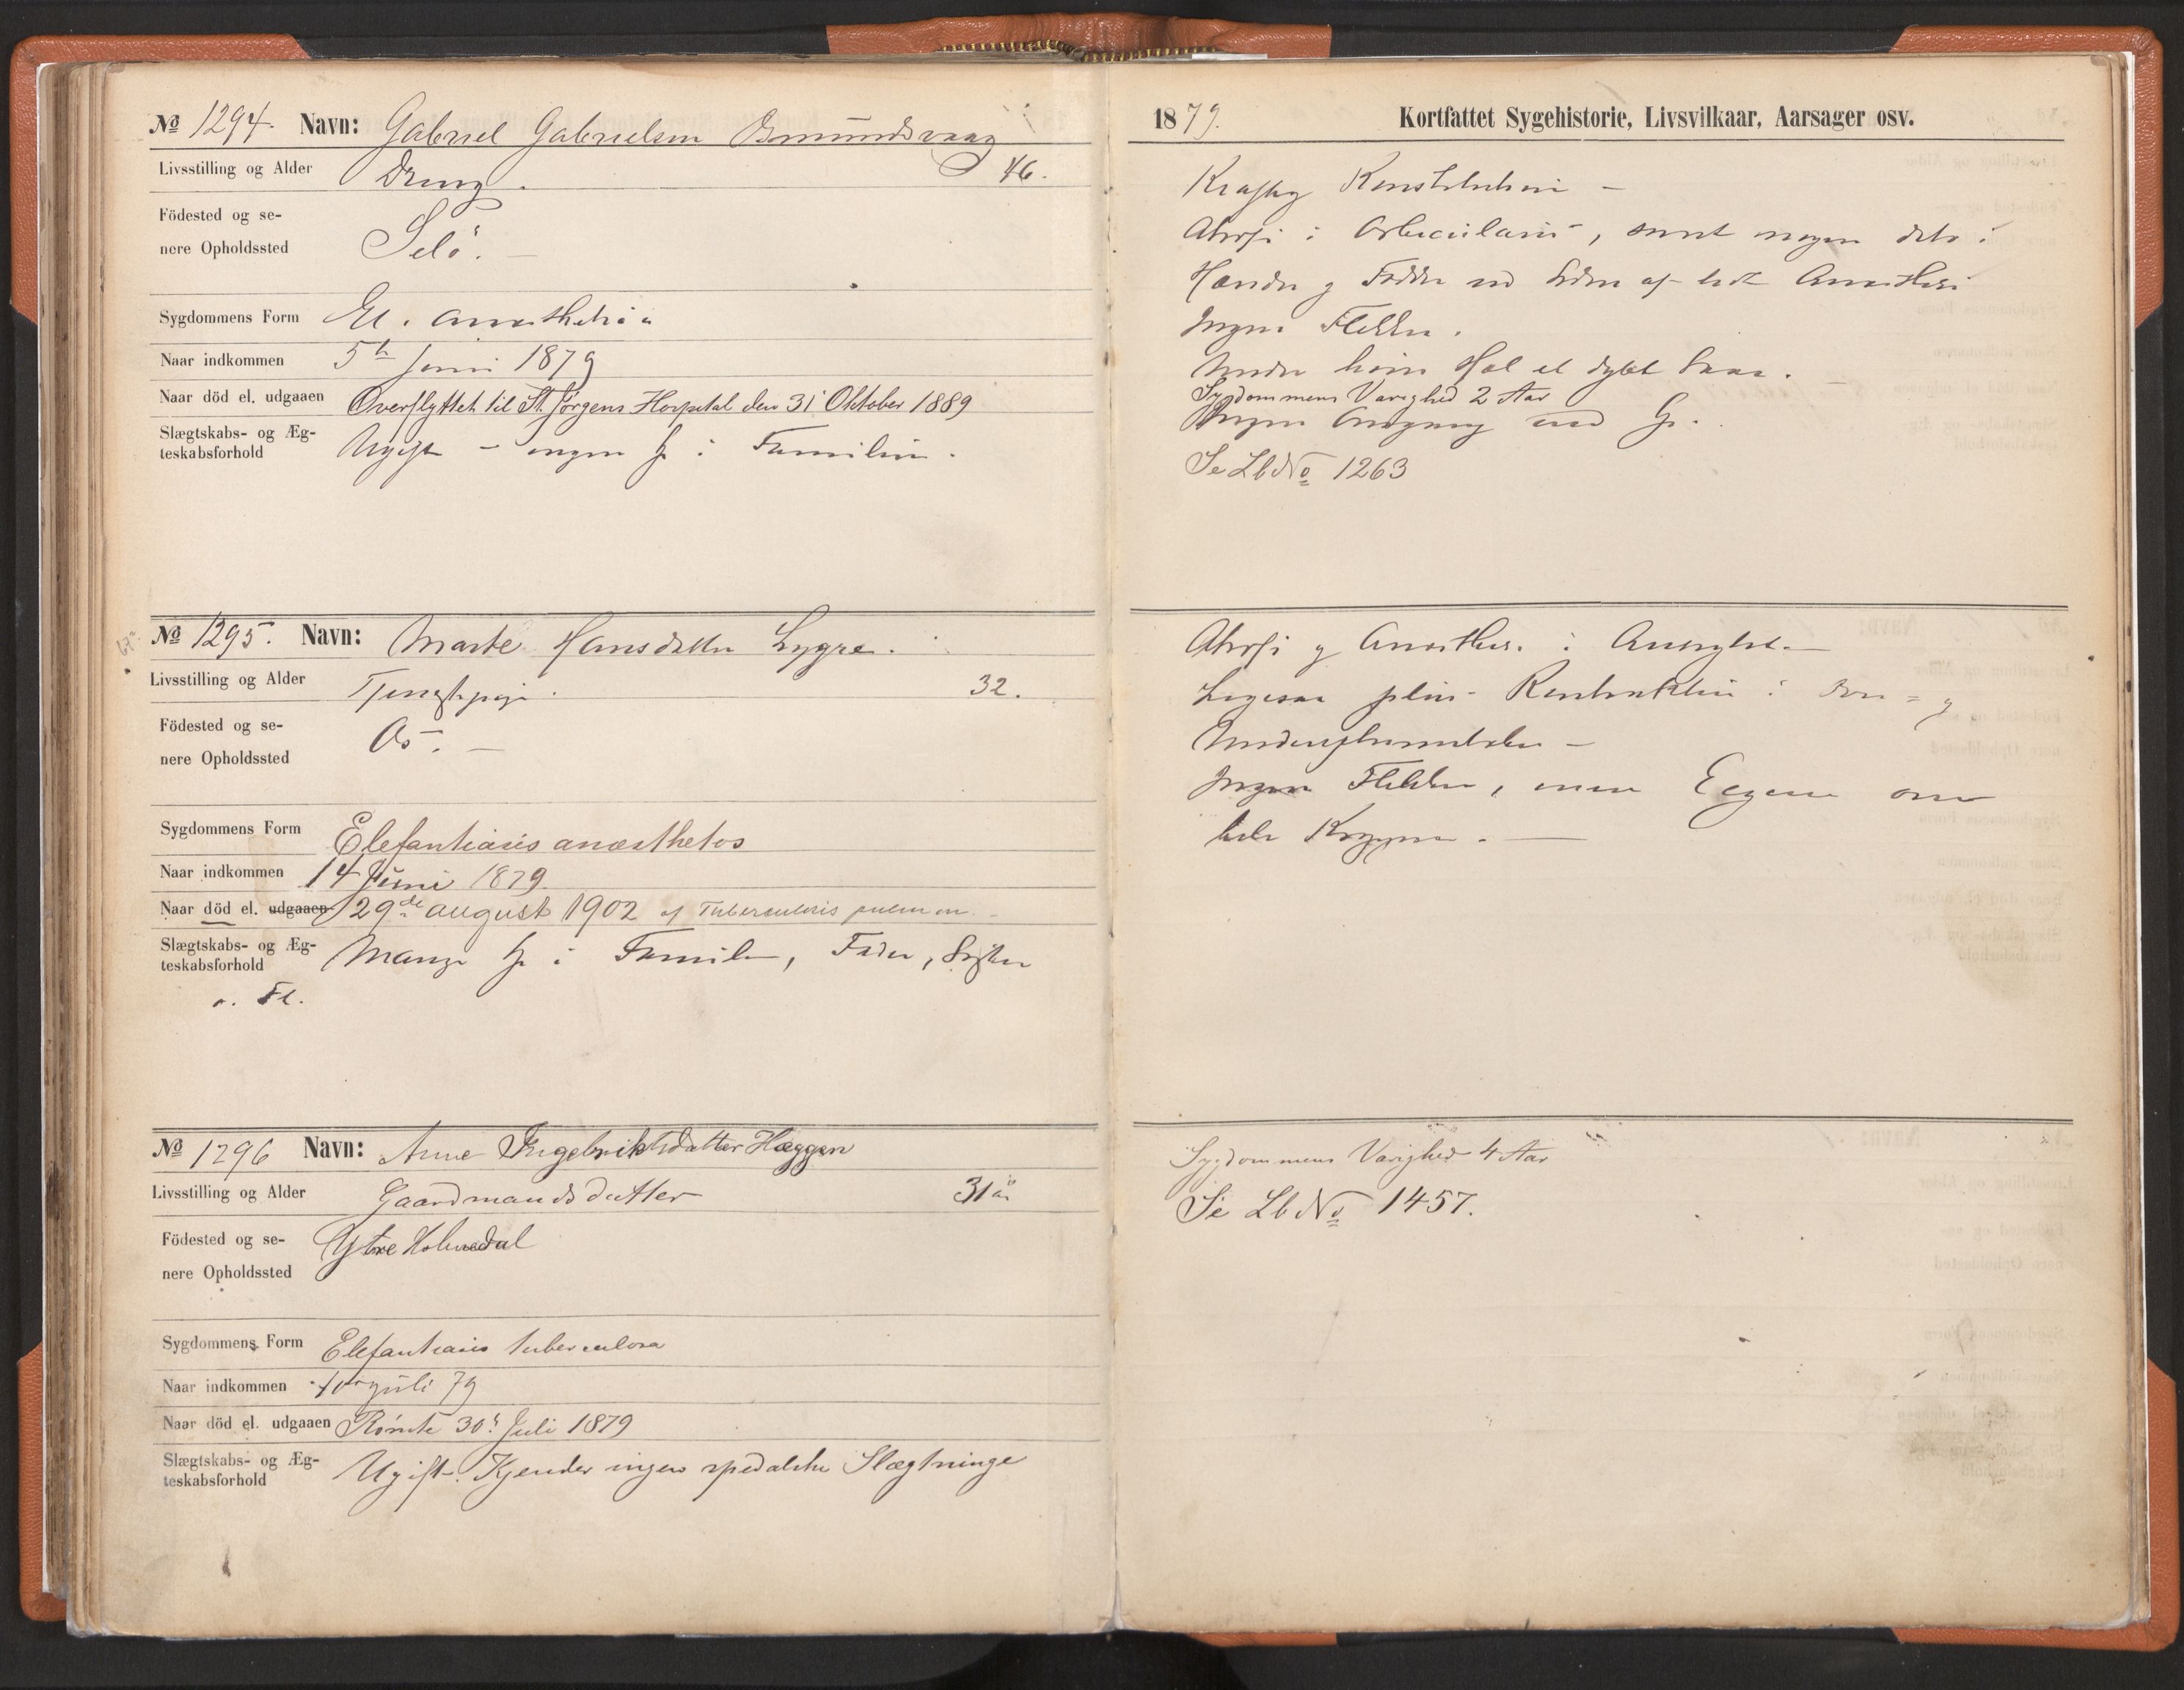 № 1294. Navn: Gabriel Gabrielsen Osmundsvaag
Livsstilling og Alder Dreng. 46.
Födested og se-
nere Opholdssted Selö. —
Sygdommens Form El. anæsthetica
Naar indkommen 5te Juni 1879
Naar död el. udgaaen Overflyttet til St. Jörgens Hospital den 31 Oktober 1889
Slægtskabs- og Æg-
teskabsforhold Ugift — ingen Sp. i Familien.
№ 1295. Navn: Marte Hansdatter Lygre.
Livsstilling og Alder Tjenestepige. 32.
Födested og se-
nere Opholdssted Os. —
Sygdommens Form Elefantiasis anæsthetos
Naar indkommen 14 Juni 1879.
Naar död el. udgaaen 29de august 1902 af Tuberculosis pulmon. —
Slægtskabs- og Æg-
teskabsforhold Mange Sp. i Familien, Fader, Søster
o. Fl.
№ 1296 Navn: Anne Ingebriktsdatter Hæggen
Livsstilling og Alder Gaardmandsdatter 31 år
Födested og se-
nere Opholdssted Ytre Holmedal
Sygdommens Form Elefantiasis tuberculosa
Naar indkommen Juli 79
Naar död el. udgaaen Römte 30te Juli 1879
Slægtskabs- og Æg-
teskabsforhold Ugift. Kjender ingen spedalske Slægtninge
1879. Kortfattet Sygehistorie, Livsvilkaar, Aarsager osv.
Kraftig Konstitution —
Atrofi i Orbicularis, samt nogen dito i
Hænder og Fødder Anæsthesi
Ingen Flekker.
Under Hæl et dybt Saar.
Sygdommens Varighed 2 Aar
Ingen Omgang med Sp.
Se Lb No 1263
Atrofi og Anæsthes. i Ansigtet. —
Ligesaa Kontraktion i Over= og
Underextremiteter —
Ingen Flekker, men om
hele Kroppen. —
Sygdommens Varighed 4 Aar
Se Lb No 1457.